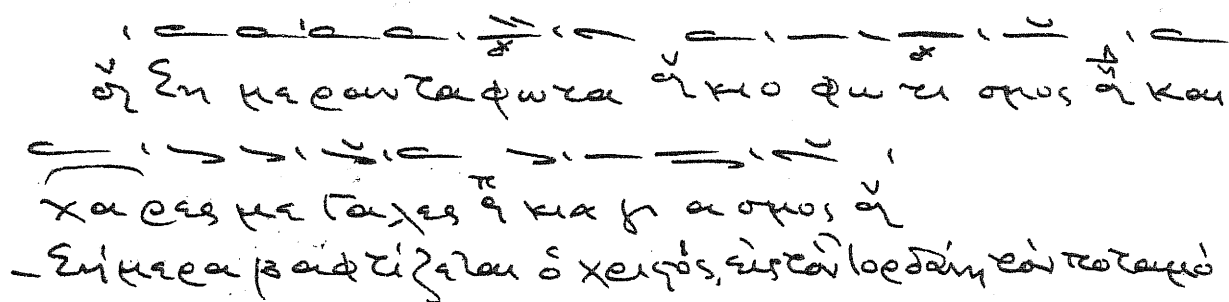 Σημερον τα φωτα κιο φω τι σμος και
χαρες με γαλες κια γι α σμος
– Σήμερα βαφτίζεται ὁ χριστός, εἰς τὸν Ἰορδάνη τὸν ποταμό